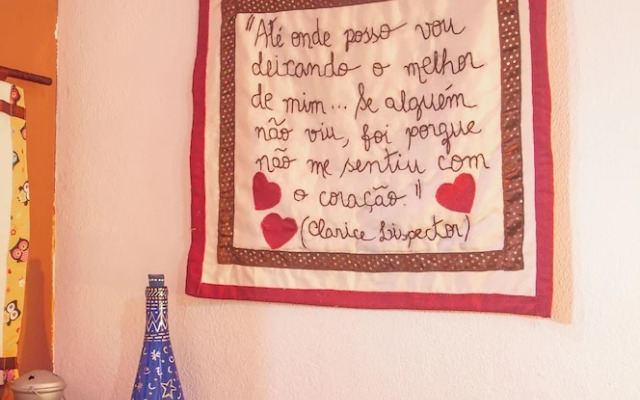 "Até onde posso vou
deixando o melhor
de mim... Se alguém
não viu, foi porque
não me sentiu com
o coração."
(Clarice Lispector)